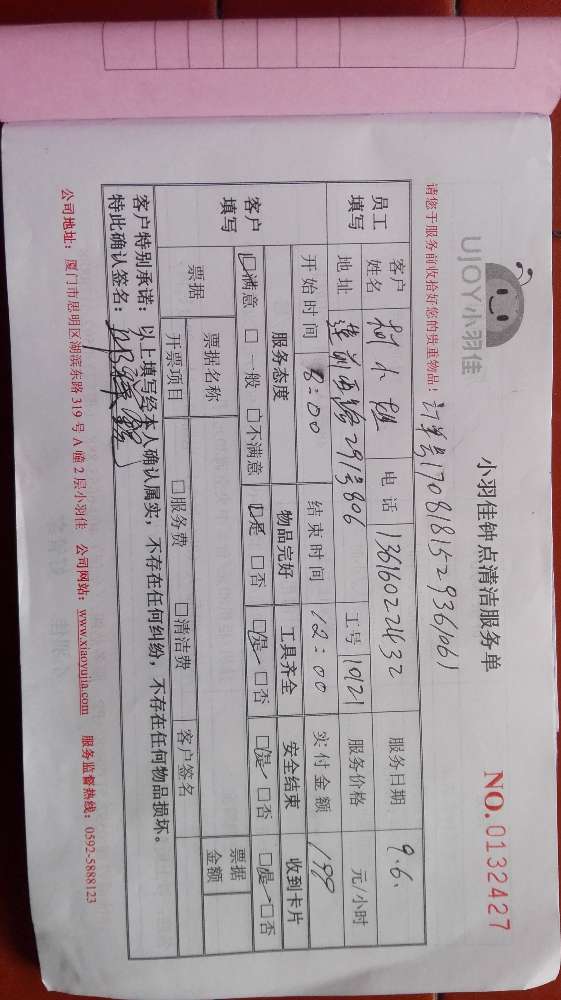 UJOY小羽佳
小羽佳钟点清洁服务单
NO.0132427
请您于服务前收拾好您的贵重物品!
订单号1708181529361061
员工填写
客户姓名 柯小姐 电话 13616022432 服务日期 9.6.
地址 莲前西路291号806 工号 10121 服务价格 元/小时
开始时间 8:00 结束时间 12:00 实付金额 199
客户填写
服务态度 物品完好 工具齐全 安全结束 收到卡片
☑满意 □一般 □不满意 ☑是 □否 ☑是 □否 ☑是 □否 ☑是 □否
票据 票据名称 票据金额
开票项目 □服务费 □清洁费 客户签名
客户特别承诺:以上填写经本人确认属实,不存在任何纠纷,不存在任何物品损坏。
特此确认签名:
公司地址:厦门市思明区湖滨东路319号A幢2层小羽佳 公司网站:www.xiaoyujia.com 服务监督热线:0592-5888123